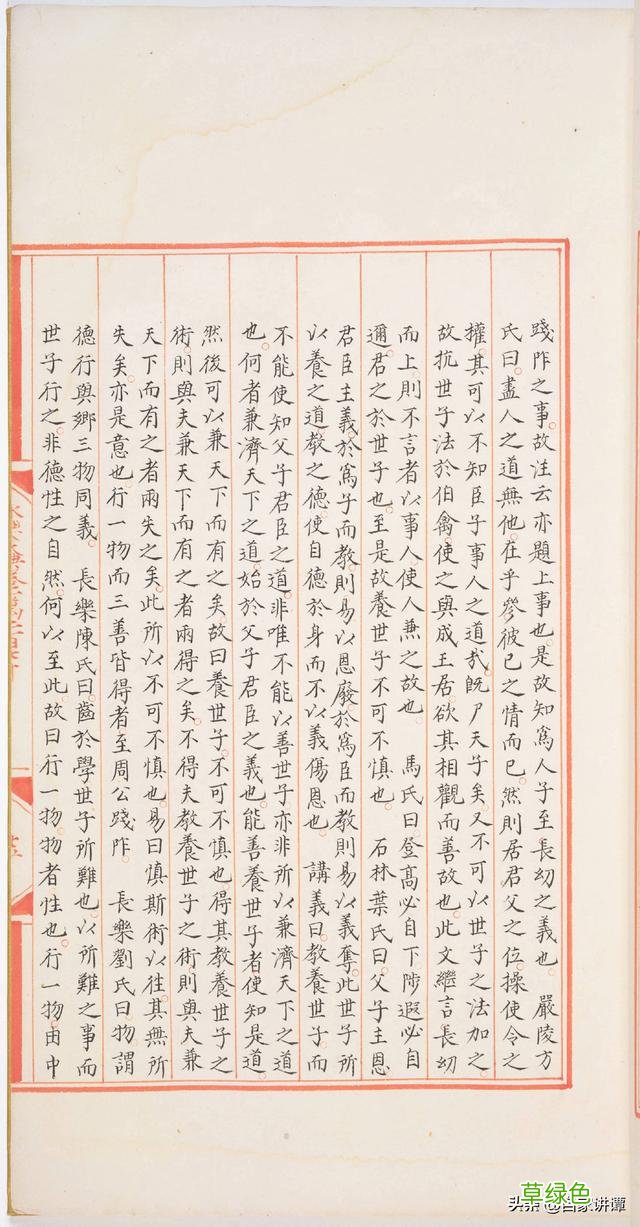 踐阼之事。故注云亦題上事也。是故知爲人子至長㓜之義也 嚴陵方
氏曰。盡人之道無他。在乎參彼己之情而已。然則居君父之位。操使令之
權。其可以不知臣子事人之道哉。旣尸天子矣。又不可以世子之法加之。
故抗世子法於伯禽。使之與成王居。欲其相觀而善故也。此文繼言長㓜
而上。則不言者。以事人使人兼之故也 馬氏曰。登高必自下。陟遐必自
邇。君之於世子也。至是故養世子不可不慎也 石林葉氏曰。父子主恩
君臣主義。於爲子而教。則易以恩廢。於爲臣而教。則易以義奪。此世子所
以養之道。教之德。使自德於身而不以義傷恩也 講義曰。教養世子而
不能使知父子君臣之道。非唯不能以善世子。亦非所以兼濟天下之道
也。何者。兼濟天下之道。始於父子君臣之義也。能善養世子者。使知是道
然後可以兼天下而有之矣。故曰養世子不可不慎也。得其教養世子之
術。則與夫兼天下而有之者兩得之矣。不得夫教養世子之術。則與夫兼
天下而有之者兩失之矣。此所以不可不慎也。易曰慎斯術以往。其無所
失矣。亦是意也。行一物而三善皆得者。至周公踐阼 長樂劉氏曰。物謂
德行。與鄉三物同義 長樂陳氏曰。齒於學。世子所難也。以所難之事而
世子行之。非德性之自然。何以至此。故曰行一物。物者性也。行一物。由中
草绿色
头条 @百家讲谭